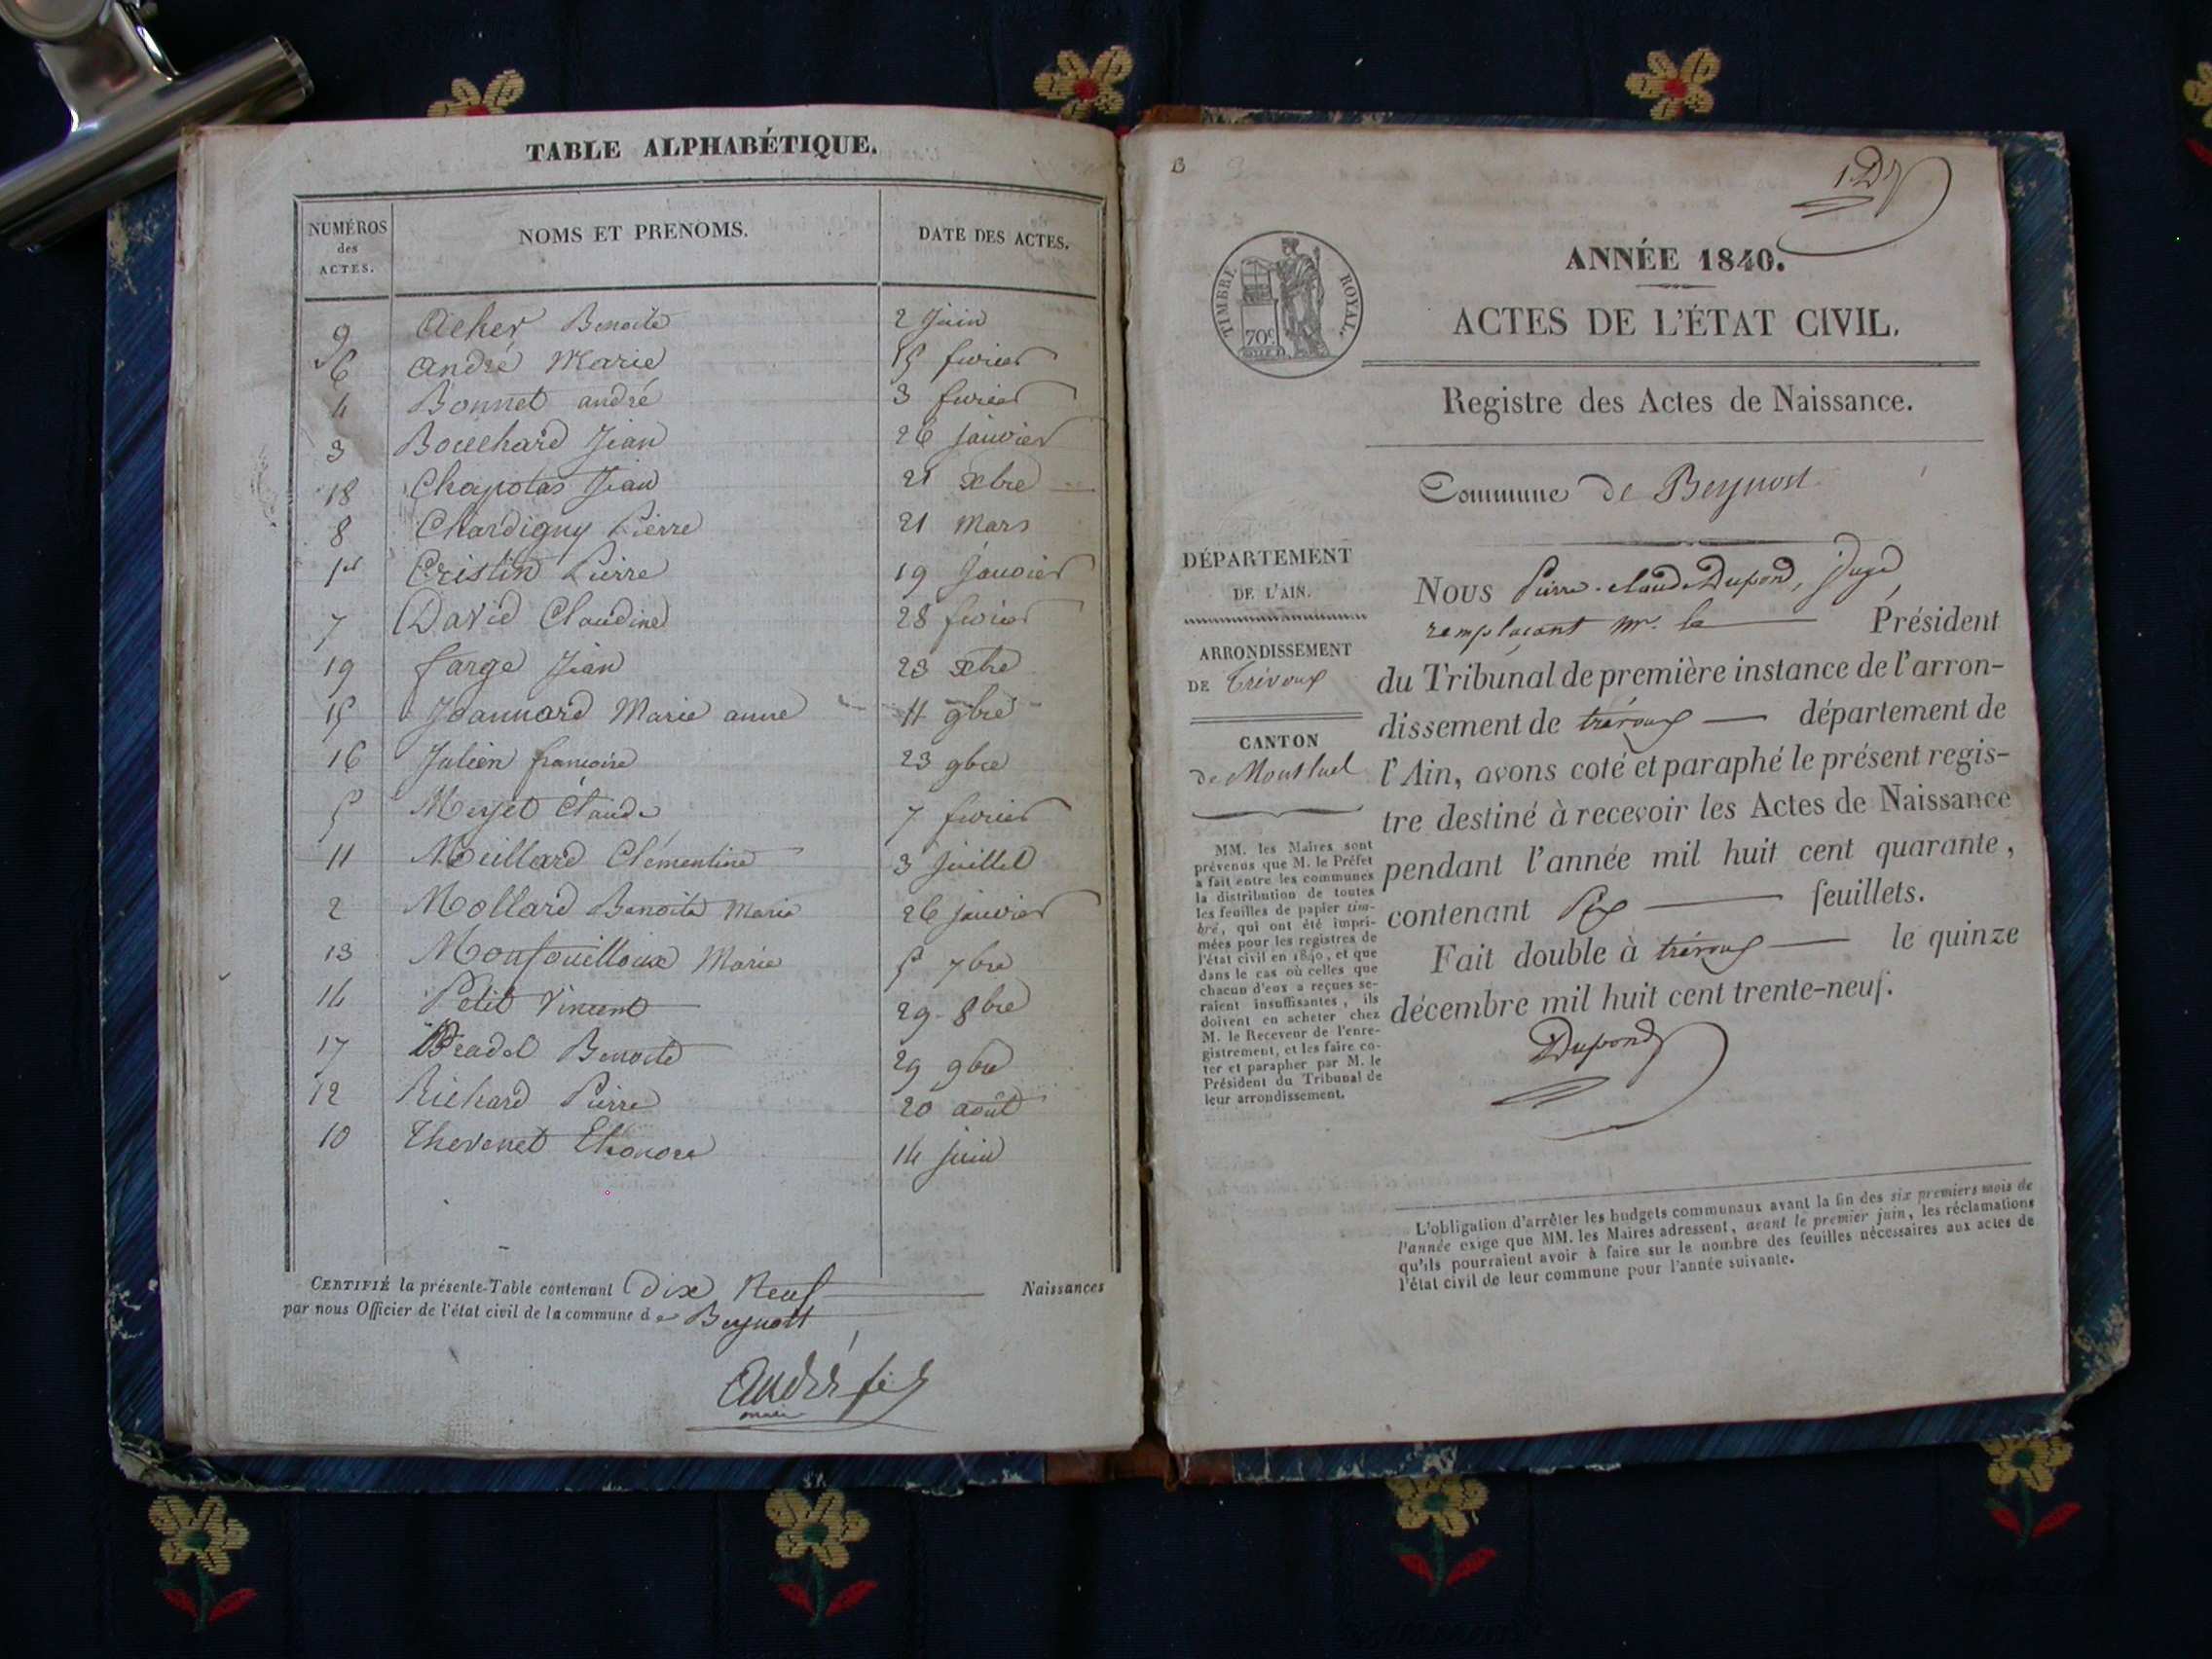 TABLE ALPHABÉTIQUE.
NUMÉROS des ACTES. NOMS ET PRENOMS. DATE DES ACTES.
9 Acher Benoite 2 Juin
6 André Marie 15 fevrier
4 Bonnet andré 3 fevrier
3 Bouchard Jean 26 janvier
18 Chapotas Jean 21 xbre
8 Chardigny Pierre 21 Mars
1er Cristin Pierre 19 Janvier
7 David Claudine 28 fevrier
19 farge Jean 23 xbre
15 Joannard Marie anne 11 9bre
16 Julien francoise 23 9bre
5 Merjet Claude 7 fevrier
11 Meillard Clémentine 3 Juillet
2 Mollard Benoite Marie 26 janvier
13 Monfouilloux Marie 5 7bre
14 Petit Vincent 29 8bre
17 Pradel Benoite 29 9bre
12 Richard Pierre 20 août
10 Thevenet Eleonore 14 juin
CERTIFIÉ la présente Table contenant Dix Neuf Naissances
par nous Officier de l'état civil de la commune de Beynost
André fils
maire
B
1. D
TIMBRE ROYAL.
70c
ANNÉE 1840.
ACTES DE L'ÉTAT CIVIL.
Registre des Actes de Naissance.
Commune de Beynost
DÉPARTEMENT
DE L'AIN.
ARRONDISSEMENT
DE Trévoux
CANTON
de Montluel
MM. les Maires sont
prévenus que M. le Préfet
a fait entre les communes
la distribution de toutes
les feuilles de papier tim-
bré, qui ont été impri-
mées pour les registres de
l'état civil en 1840, et que
dans le cas où celles que
chacun d'eux a reçues se-
raient insuffisantes, ils
doivent en acheter chez
M. le Receveur de l'enre-
gistrement, et les faire co-
ter et parapher par M. le
Président du Tribunal de
leur arrondissement.
Nous Pierre-claude Dupond, Juge
remplaçant mr. le Président
du Tribunal de première instance de l'arron-
dissement de trévoux département de
l'Ain, avons coté et paraphé le présent regis-
tre destiné à recevoir les Actes de Naissance
pendant l'année mil huit cent quarante,
contenant Six feuillets.
Fait double à trévoux le quinze
décembre mil huit cent trente-neuf.
Dupond
L'obligation d'arrêter les budgets communaux avant la fin des six premiers mois de
l'année exige que MM. les Maires adressent, avant le premier juin, les réclamations
qu'ils pourraient avoir à faire sur le nombre des feuilles nécessaires aux actes de
l'état civil de leur commune pour l'année suivante.